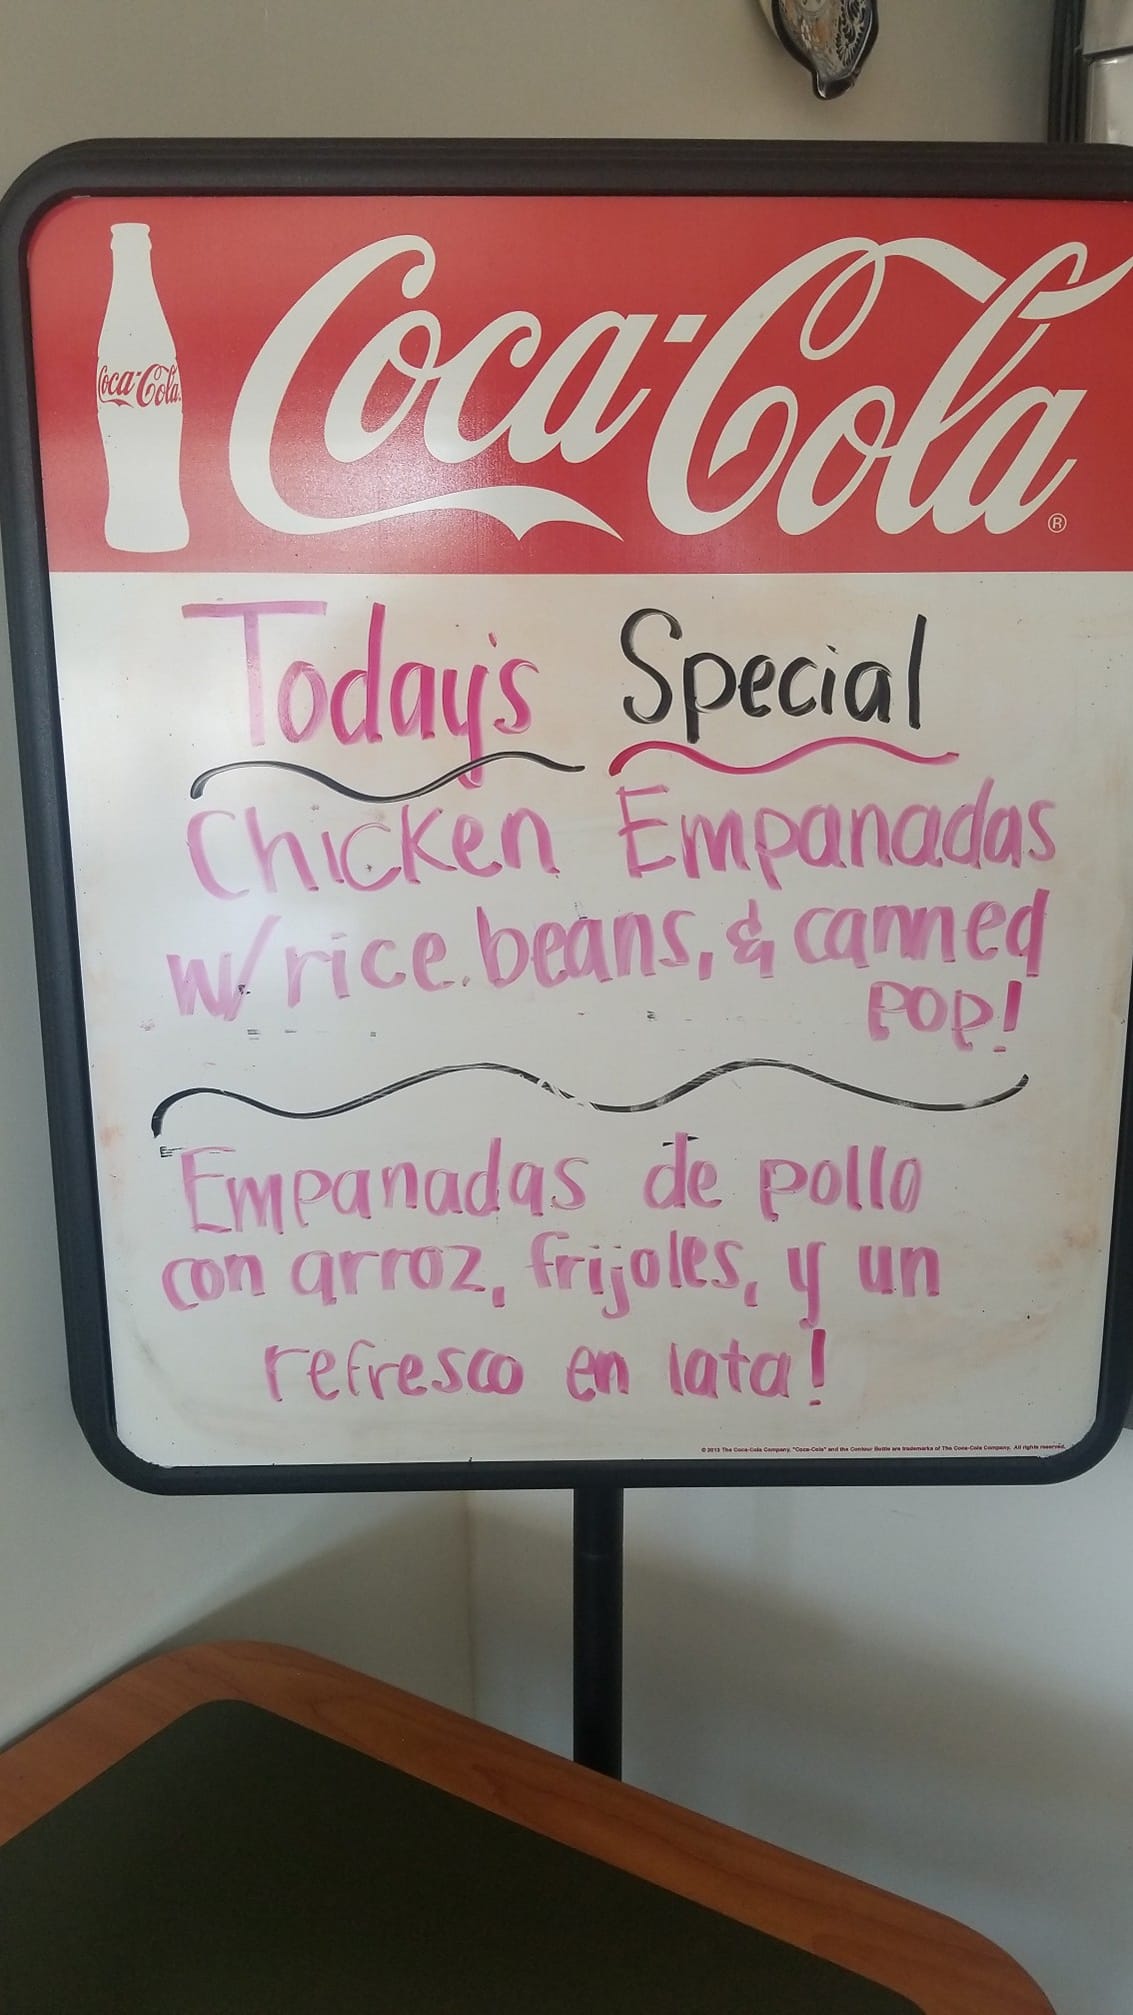 Coca-Cola
Coca-Cola®
Today's Special
Chicken Empanadas
w/ rice. beans, & canned
POP!
Empanadas de pollo
con arroz, frijoles, y un
refresco en lata!
© 2013 The Coca-Cola Company. "Coca-Cola" and the Contour Bottle are trademarks of The Coca-Cola Company. All rights reserved.